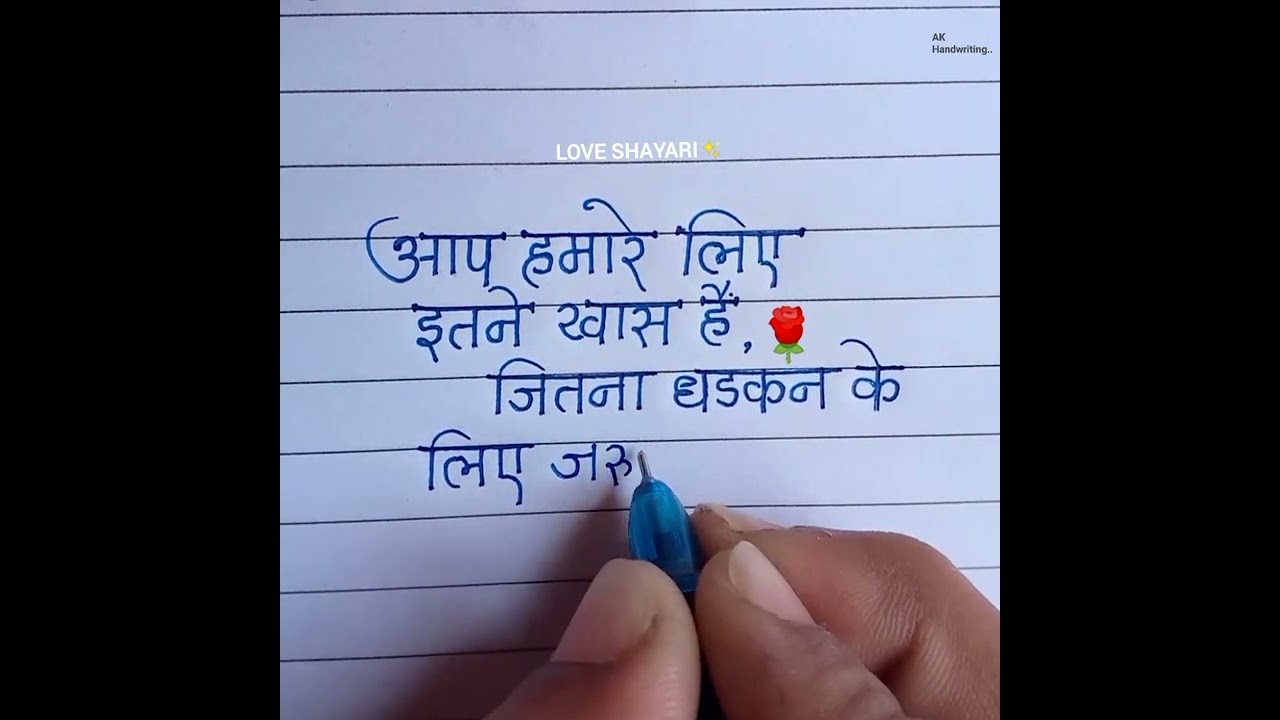 AK
Handwriting..
LOVE SHAYARI✨
आप हमारे लिए
इतने खास हैं,🌹
जितना धडकन के
लिए जरु